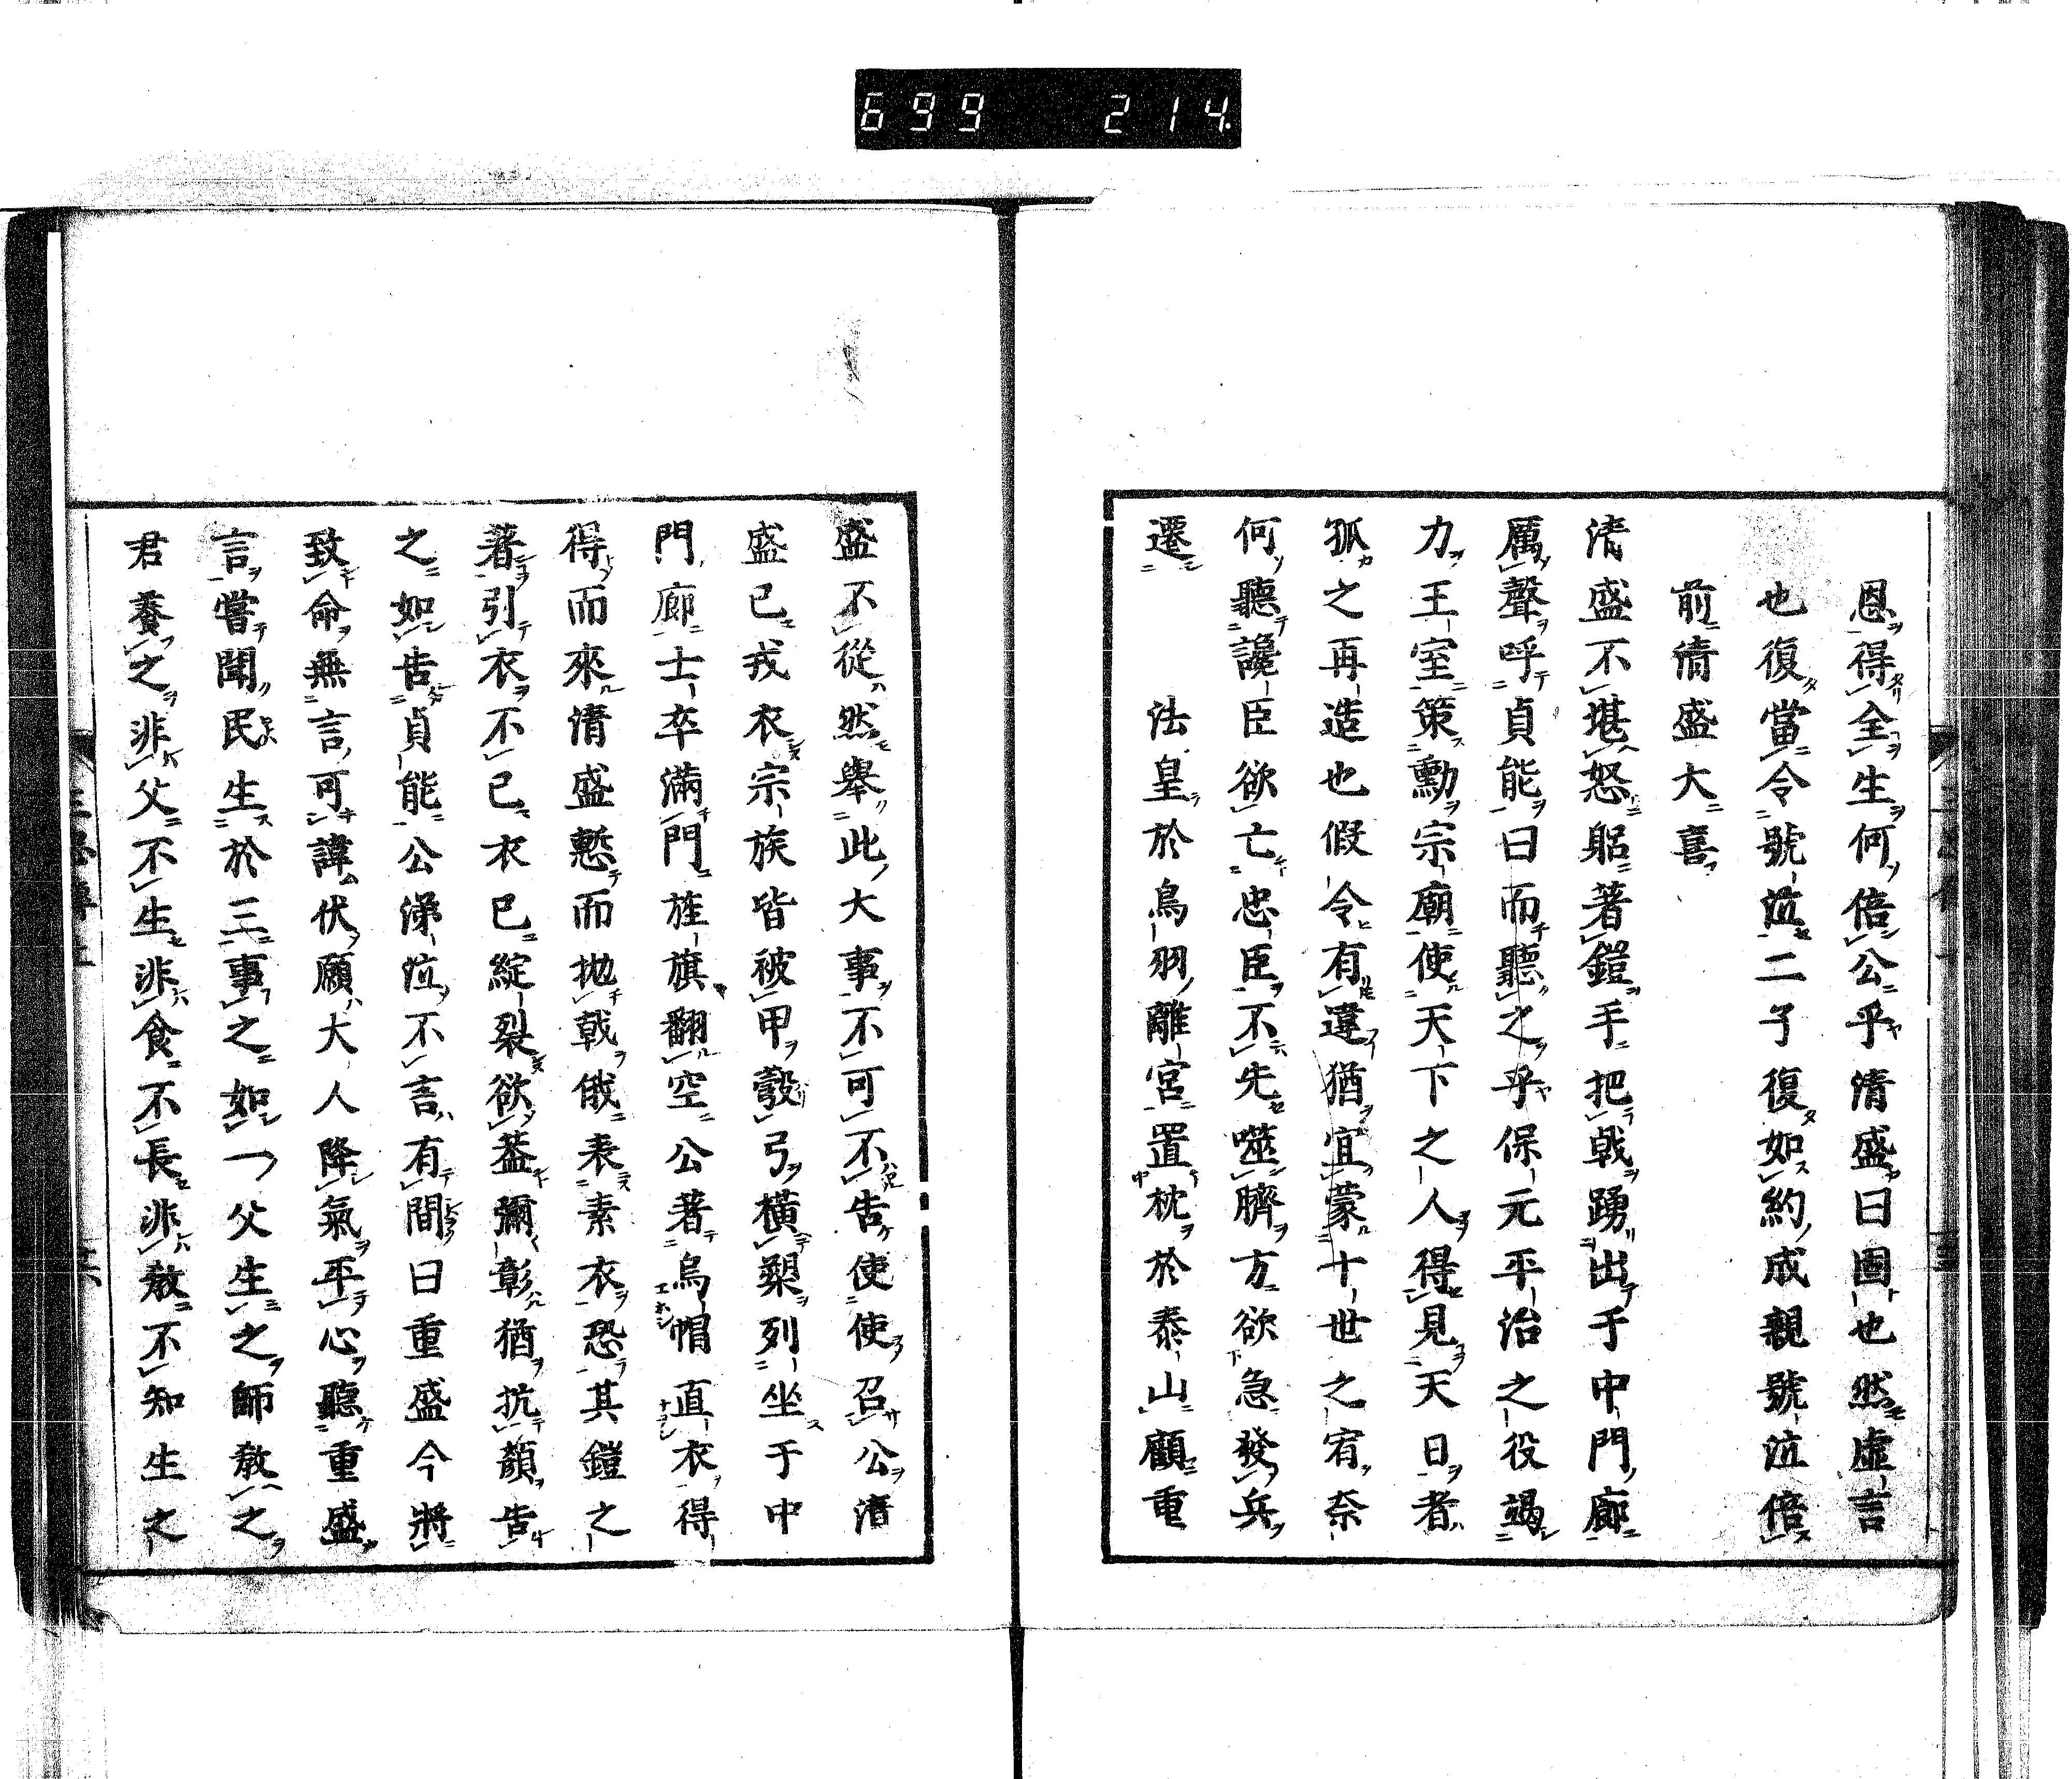 699 214
恩得全生何倍公乎清盛曰固也然虛言
也復當令號泣二子復如約成親號泣倍
前清盛大喜
清盛不堪怒躬著鎧手把戟踴出于中門廊
厲聲呼貞能曰而聽之乎保元平治之役竭
力王室策勳宗廟使天下之人得見天日者
孤之再造也假令有違猶宜蒙十世之宥奈
何聽讒臣欲亡忠臣不先噬臍方欲急發兵
遷　　法皇於鳥羽離宮置枕於泰山顧重
盛不從然舉此大事不可不告使使召公清
盛已戎衣宗族皆被甲彀弓橫槊列坐于中
門廊士卒滿門旌旗翻空公著烏帽直衣得得
而來清盛慙而拋戟俄表素衣恐其鎧之
著引衣不已衣已綻裂欲蓋彌彰猶抗顏告
之如告貞能公涕泣不言有間曰重盛今將
致命無言可諱伏願大人降氣平心聽重盛
言嘗聞民生於三事之如一父生之師教之
君養之非父不生非食不長非教不知生之